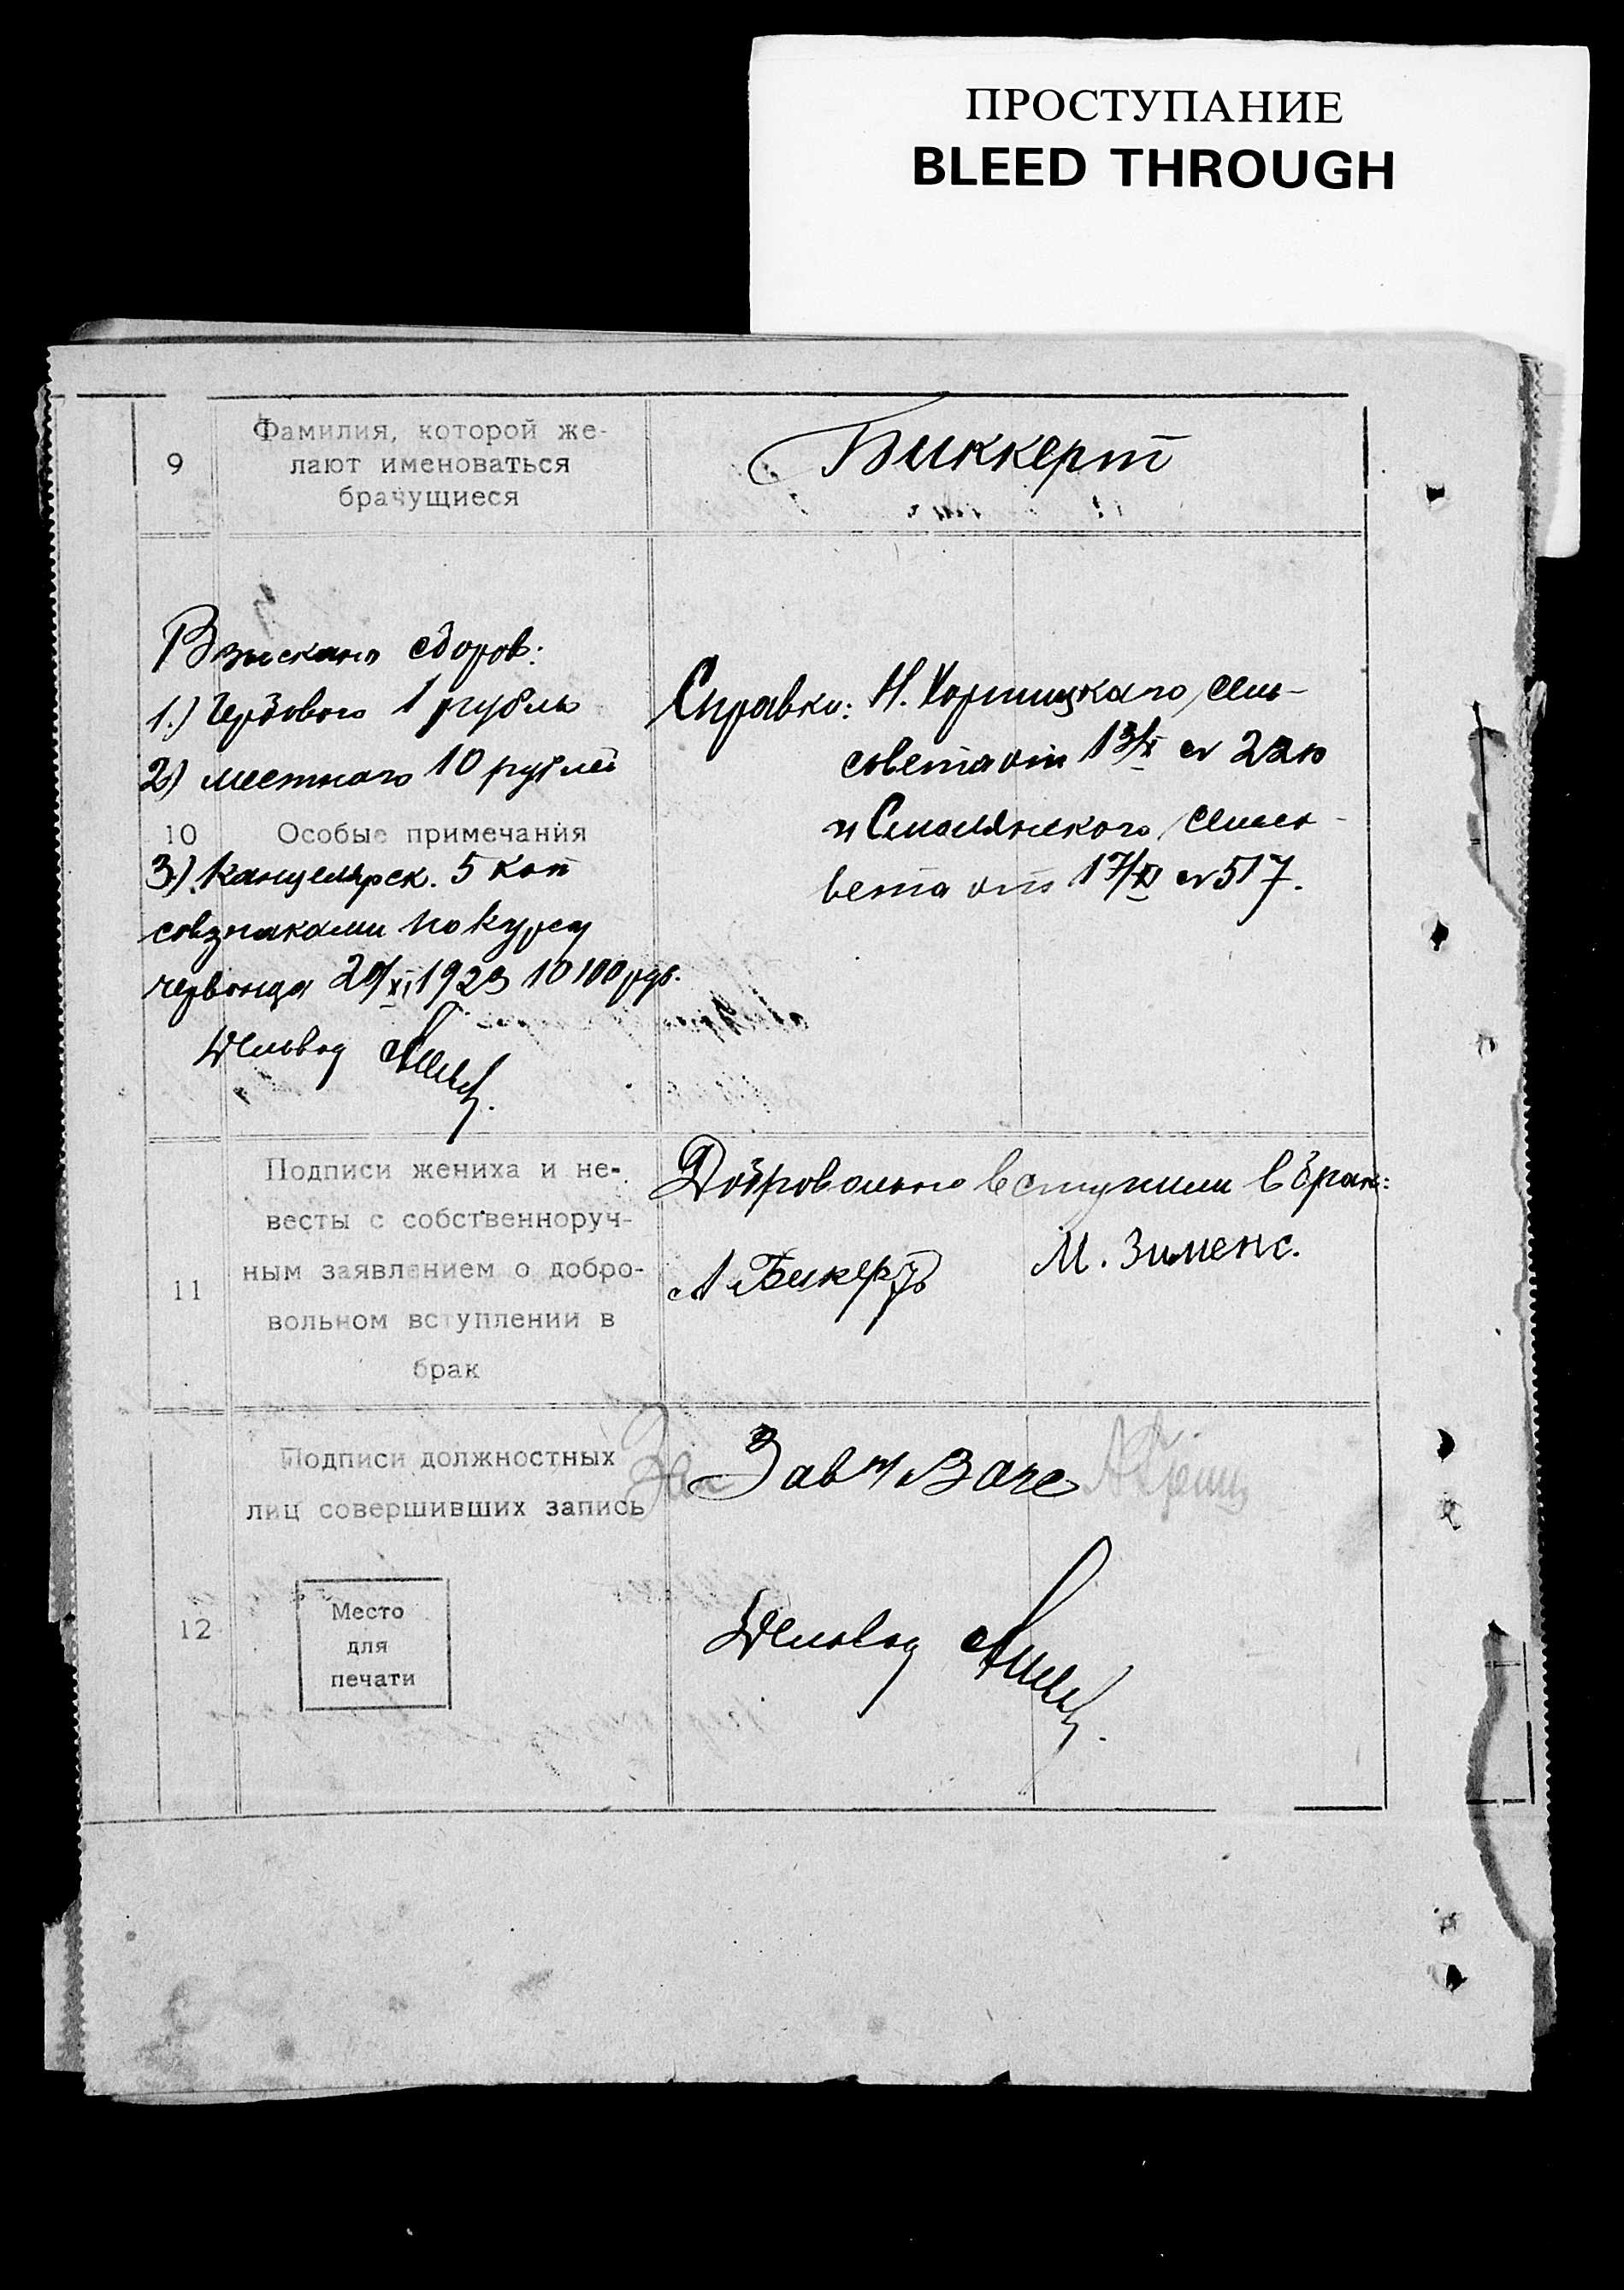 ПРОСТУПАНИЕ
BLEED THROUGH
9
Фамилия, которой же-
лают именоваться
брачущиеся
Биккерт
Взыскано сборов:
1.) Гербового 1 рубль
2) местного 10 рублей
10 Особые примечания
3.) Канцелярск. 5 коп
совзнаками по курсу
червонца 20/XI 1923 10100 руб.
Деловод
Справки: Н. Хортицкого сель-
совета от 13/XI №
и Смолянского сельсо-
вета от 17/XI № 517.
11
Подписи жениха и не-
весты с собственноруч-
ным заявлением о добро-
вольном вступлении в
брак
Добровольно вступили в брак:
А Бикертъ
М. Зименс.
12
Подписи должностных
лиц совершивших запись
Место
для
печати
За Зав
Деловод